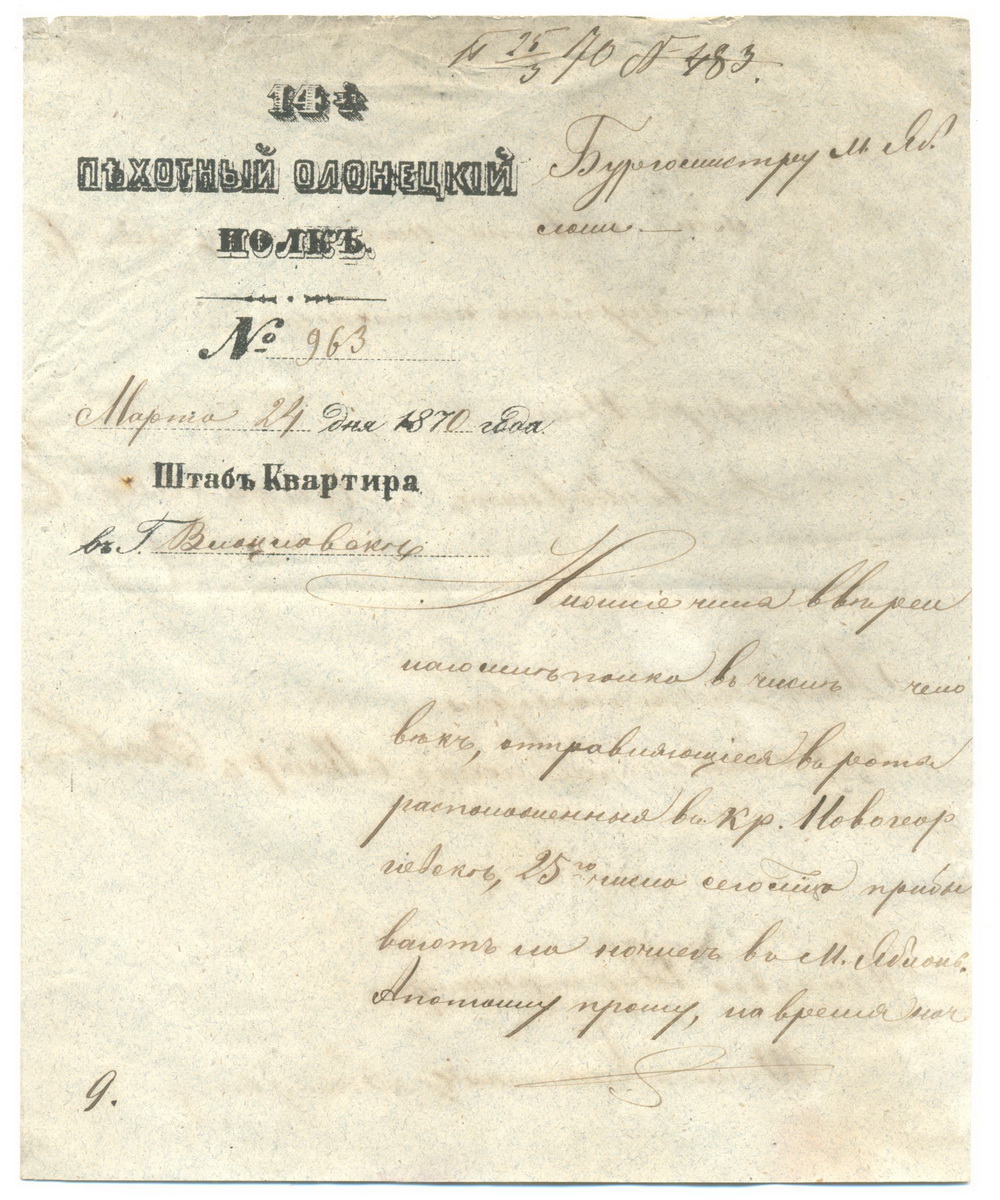 25/3 70 N 483.
14й
ПѢХОТНЫЙ ОЛОНЕЦКІЙ
ПОЛКЪ.
Бургомистру м Яб
лони
№ 963
Марта 24 дня 1870 года.
Штабъ Квартира
въ Г. Влоцлавскѣ
Нижніе чины ввѣрен
наго мнѣ полка въ числѣ чело
вѣкъ, отправляющіеся въ роты
расположенныя въ кр. Новогеор
гіевскѣ, 25го числа сего м͠ца прибы
ваютъ на ночлегъ въ м. Яблонь.
А потому прошу, на время ноч
9.